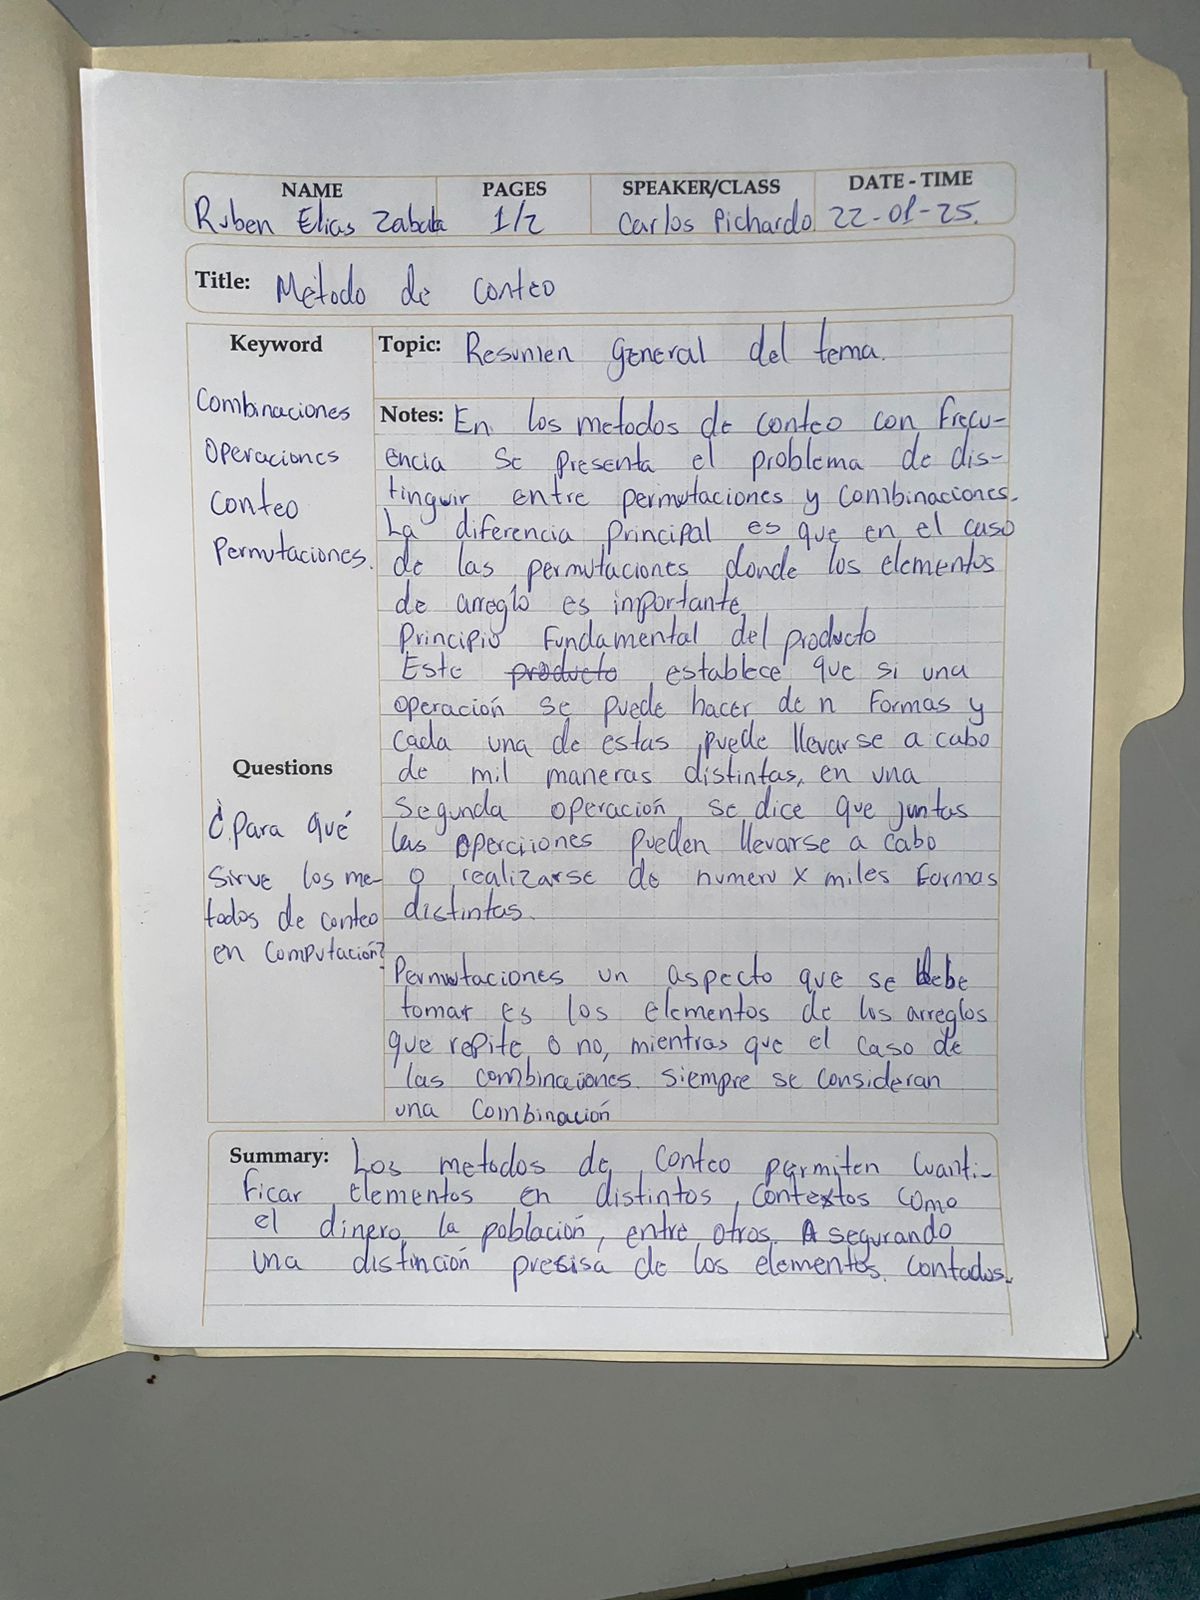 NAME PAGES SPEAKER/CLASS DATE - TIME
Ruben Elias Zabala 1/2 Carlos Pichardo 22-01-25.
Title: Metodo de conteo
Keyword
Combinaciones
Operaciones
Conteo
Permutaciones.
Questions
¿Para qué
Sirve los me-
todos de conteo
en computación?
Topic: Resumen general del tema.
Notes: En los metodos de conteo con frecu-
encia se presenta el problema de dis-
tinguir entre permutaciones y combinaciones.
La diferencia principal es que en el caso
de las permutaciones donde los elementos
de arreglo es importante
Principio Fundamental del producto
Este producto establece que si una
operación se puede hacer de n Formas y
cada una de estas puede llevarse a cabo
de mil maneras distintas, en una
Segunda operación se dice que juntas
las operciiones pueden llevarse a cabo
o realizarse de numero x miles Formas
distintas.
Permutaciones un aspecto que se debe
tomar es los elementos de los arreglos
que repite o no, mientras que el caso de
las combinaciones siempre se consideran
una combinación
Summary: Los metodos de conteo permiten cuanti-
ficar elementos en distintos contextos como
el dinero, la población, entre otros. Asegurando
una distinción presisa de los elementos contados.